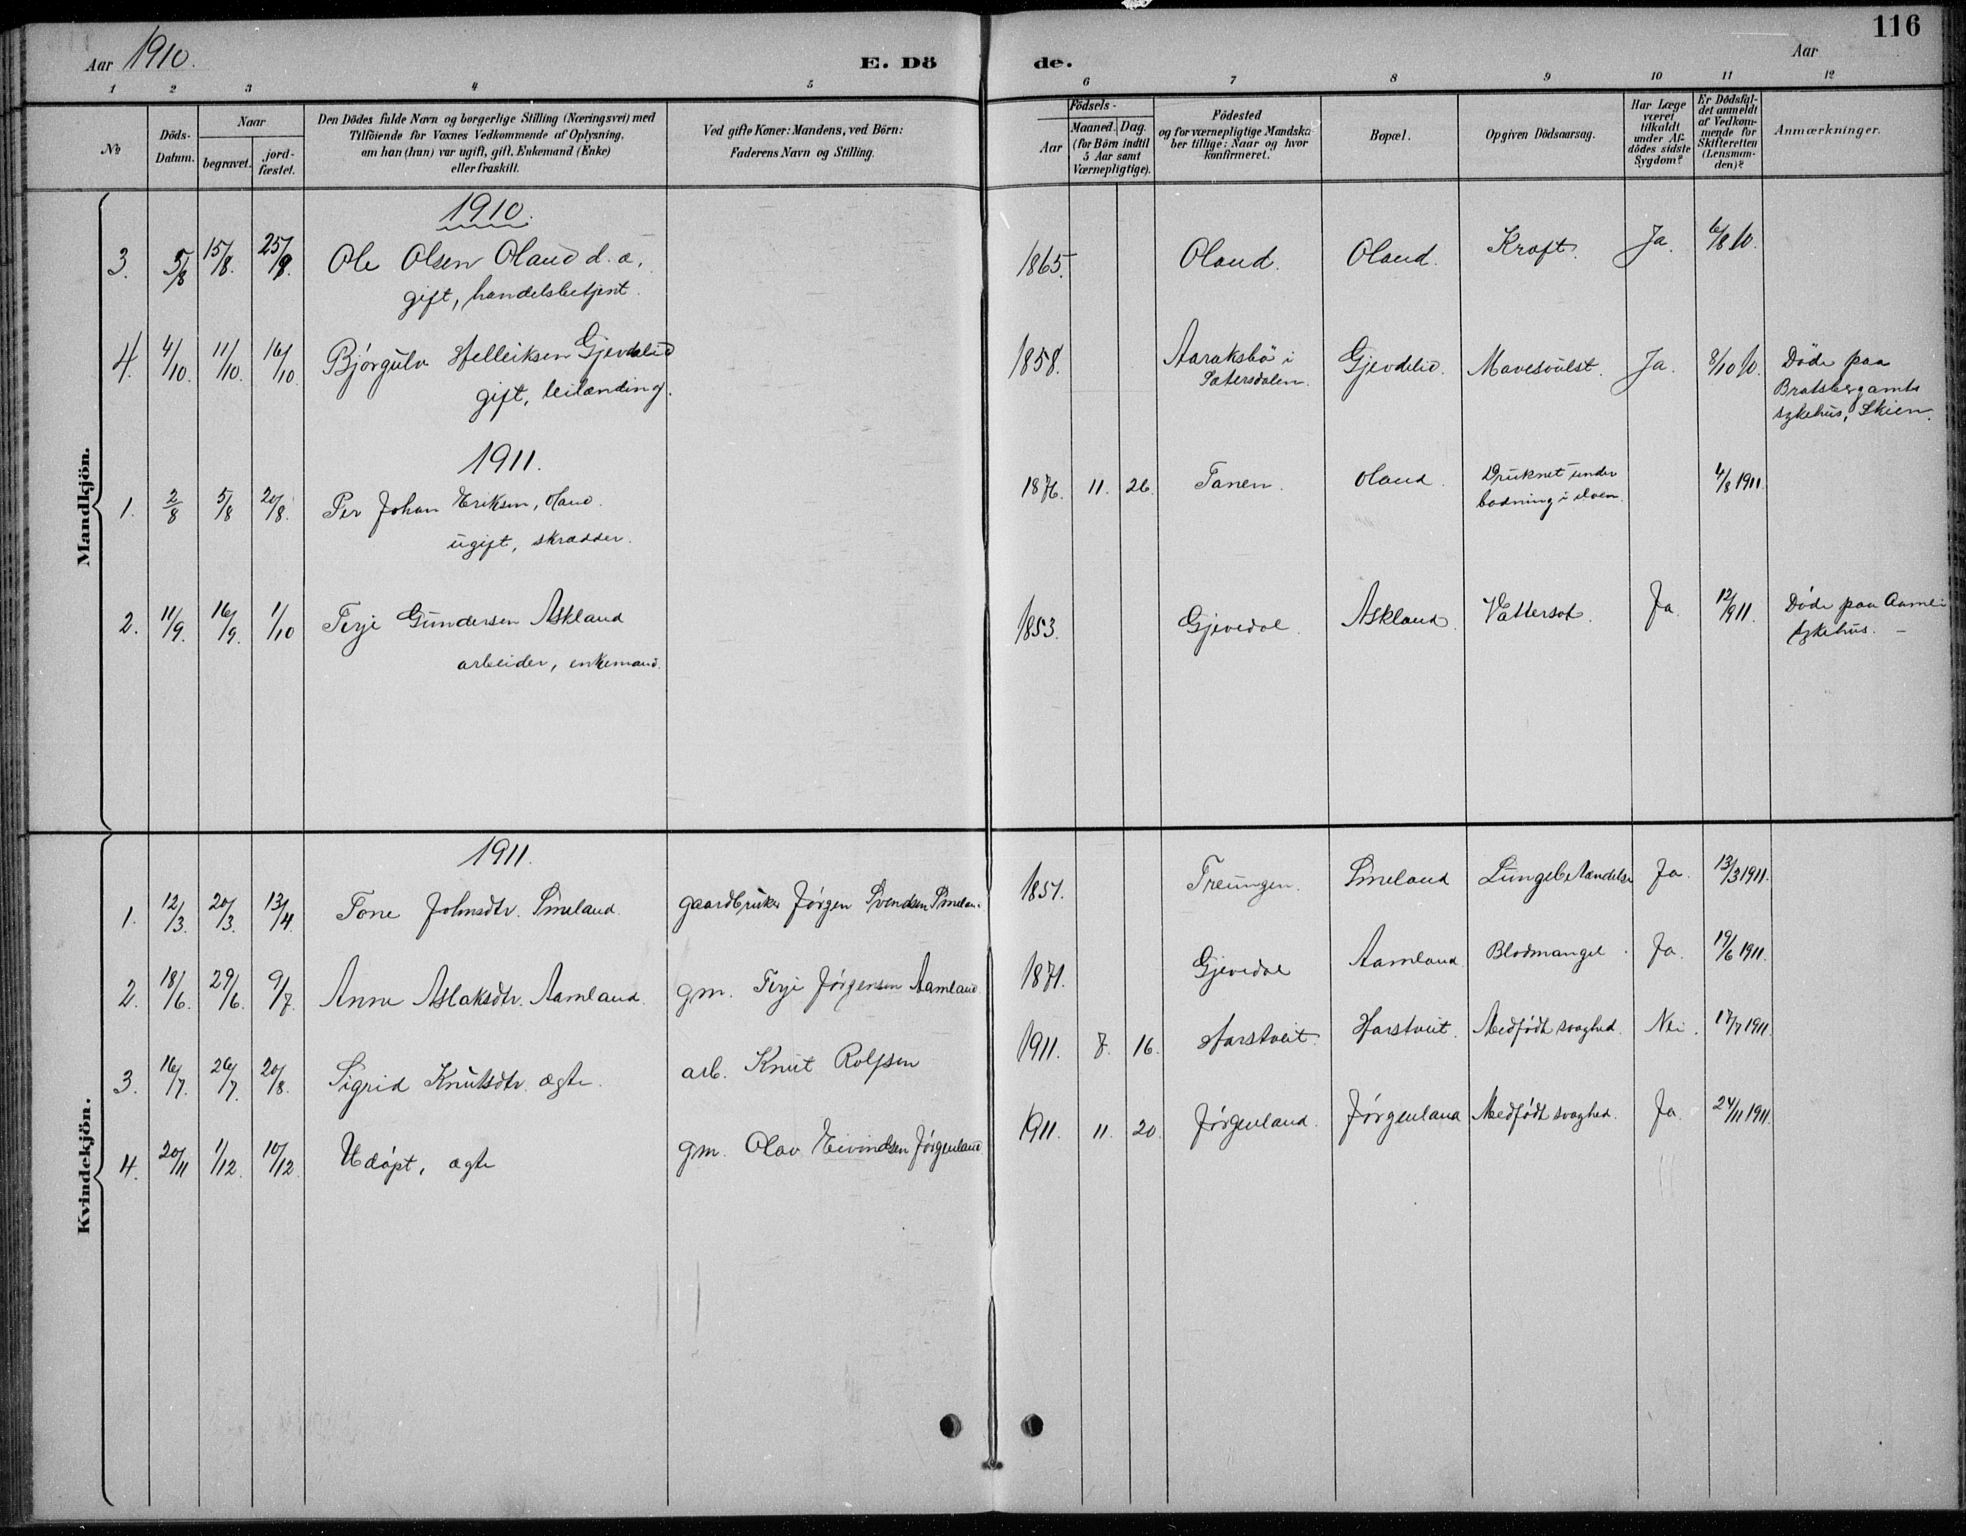 116
Aar 1910.
E. Dö de.
Aar
1 2 3 4 5 6 7 8 9 10 11 12
№
Döds-
Datum.
Naar
begravet.
jord-
fæstet.
Den Dödes fulde Navn og borgerlige Stilling (Næringsvei) med
Tilföiende for Voxnes Vedkommende af Oplysning,
om han (hun) var ugift, gift, Enkemand (Enke)
eller fraskilt.
Ved gifte Koner: Mandens, ved Börn:
Faderens Navn og Stilling.
Födsels-
Aar
Maaned. Dag.
(for Börn indtil
5 Aar samt
Værnepligtige).
Födested
og for værnepligtige Mandska-
ber tillige: Naar og hvor
konfirmeret.
Bopæl.
Opgiven Dödsaarsag.
Har Læge
været
tilkaldt
under Af-
dödes sidste
Sygdom?
Er Dödsfal-
det anmeldt
af Vedkom-
mende for
Skifteretten
(Lensman-
den)?
Anmærkninger.
Mandkjön.
1910.
3. 5/8 15/8. 25/9. Ole Olsen Oland d. æ. 1865. Oland. Oland. Kræft. Ja. 6/8 10.
gift, handelsbetjent.
4. 4/10. 11/10. 16/10 Bjørgulv Helleiksen Gjevdelid 1858. Aaraksbø i Gjevdelid. Mavesvulst. Ja. 8/10 10. Døde paa
gift, leilænding. Sætersdalen. Bratsbergamts
sykehus, Skien.
1911.
1. 2/8 5/8 20/8. Per Johan Eriksen, Oland. 1876. 11. 26. Tanen. Oland. Druknet under 4/8 1911.
ugift, skrædder. badning i elven.
2. 11/9. 16/9. 1/10 Terje Gundersen Askland 1853. Gjevedal. Askland. Vattersot. Ja. 12/9 11. Døde paa Aamli
arbeider, enkemand. sykehus. —
Kvindekjön.
1911.
1. 12/3. 20/3. 13/4. Tone Johnsdtr. Smeland. gaardbruker Jørgen Svendsen Smeland 1851. Treungen. Smeland Lungebetændelse Ja. 13/3 1911.
2. 18/6. 29/6. 9/7. Anne Aslaksdtr. Aamland. gm. Terje Jørgensen Aamland 1871. Gjevedal Aamland Blodmangel. Ja. 19/6 1911.
3. 16/7. 26/7. 20/8. Sigrid Knutsdtr. ægte. arb. Knut Rolfsen 1911. 7. 16. Harstveit. Harstveit. Medfødt svaghed. Nei. 17/7 1911.
4. 20/11 1/12. 10/12. Udøpt, ægte gm. Olav Eivindsen Jørgenland 1911. 11. 20. Jørgenland. Jørgenland Medfødt svaghed. Ja. 24/11 1911.